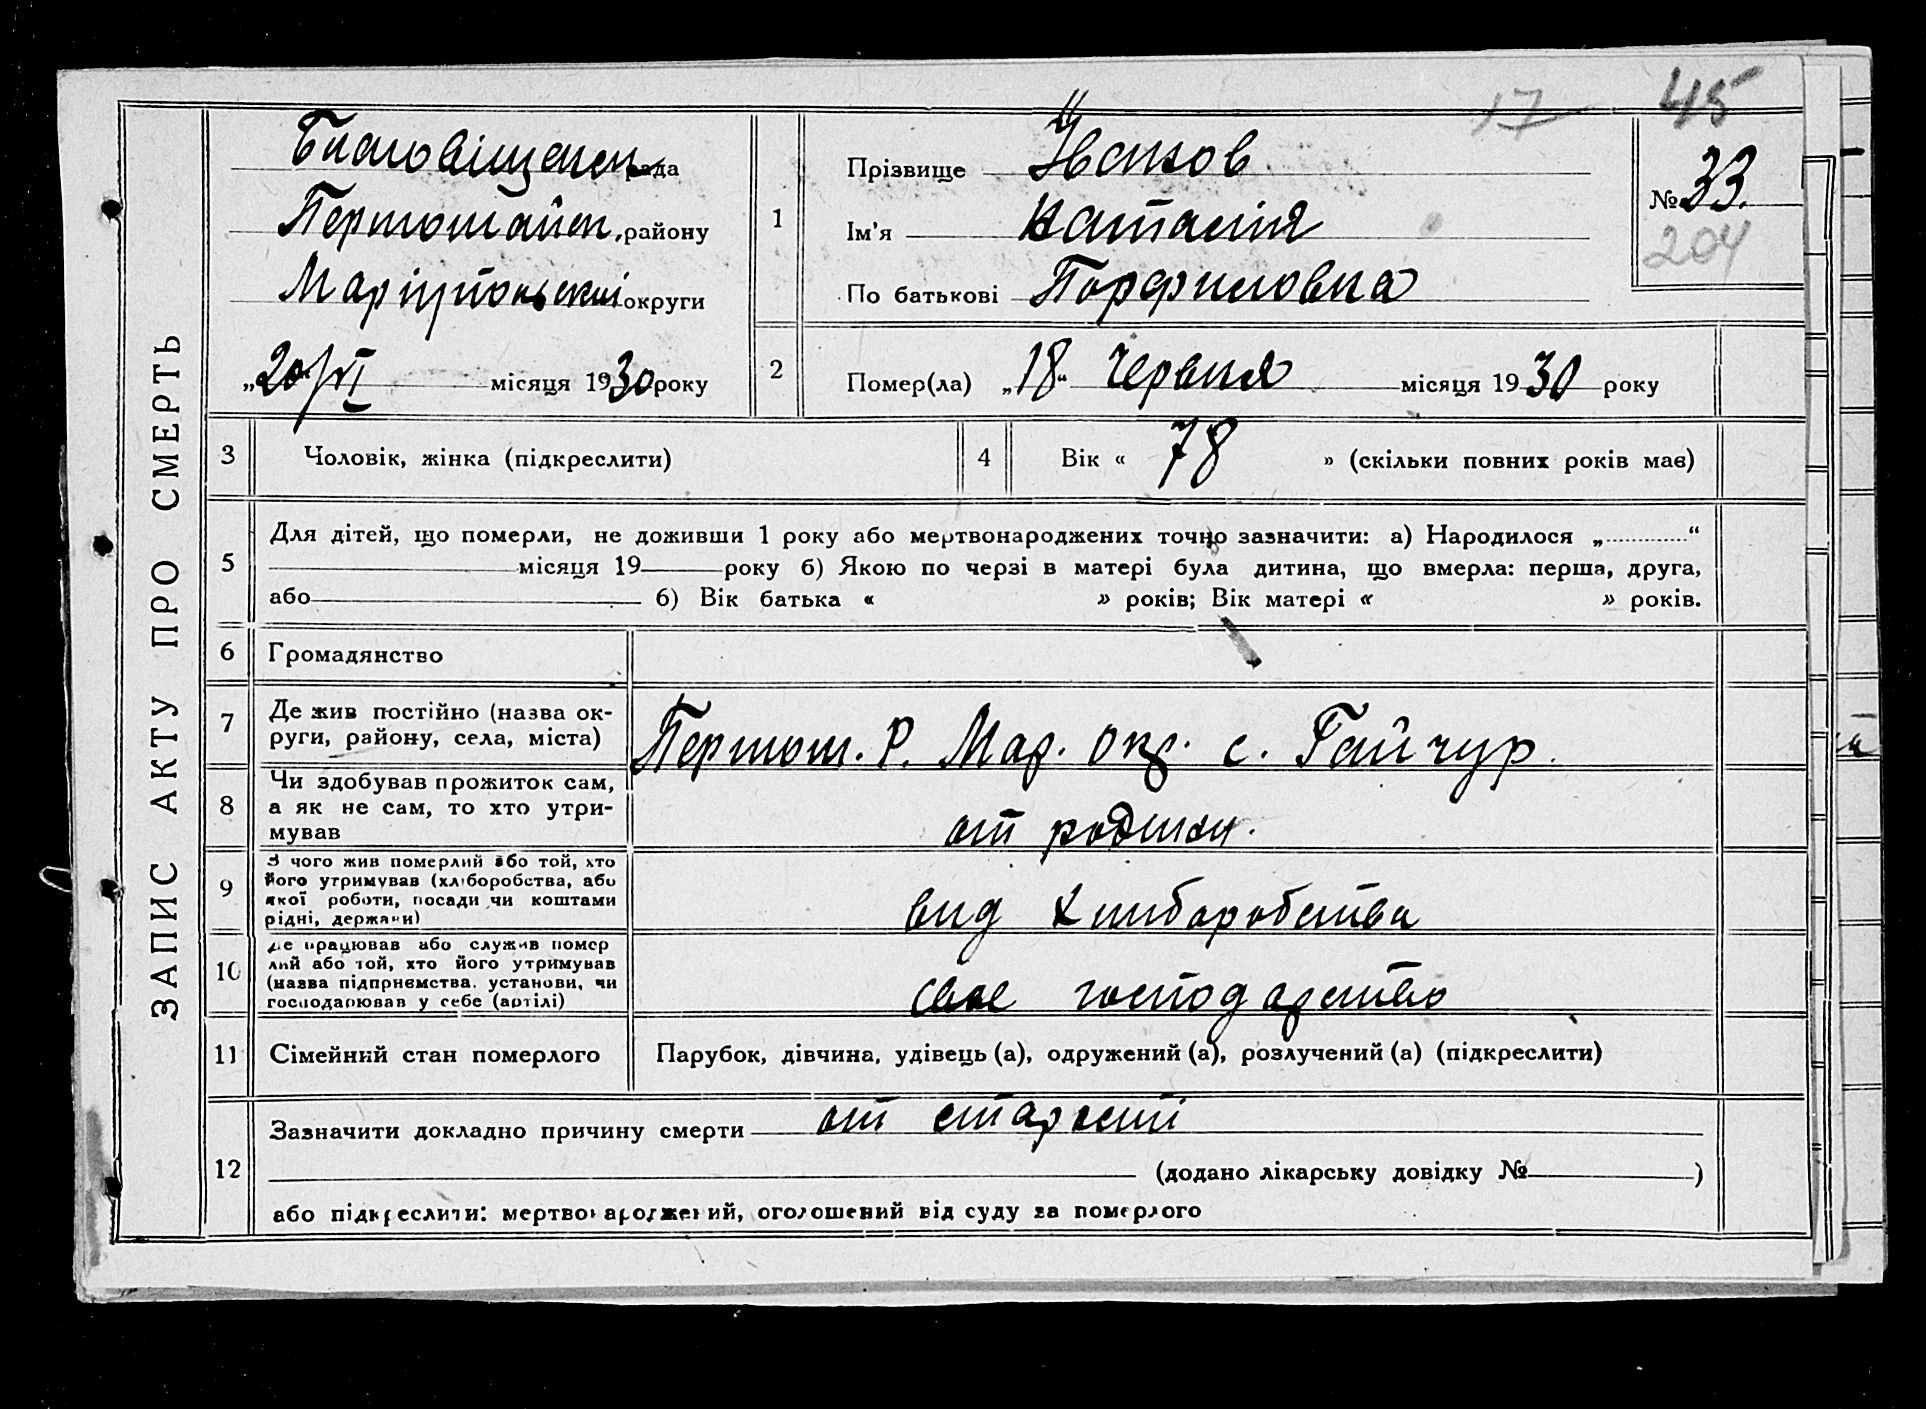 17 45
ЗАПИС АКТУ ПРО СМЕРТЬ
Благовіщенск рада
Першомайск. району
Маріупольської округи
„20“/VI місяця 1930 року
1
Прізвище Іванов
Ім'я Наталія
По батькові Порфиловна
№ 33.
204
2
Помер(ла) „18“ Червня місяця 1930 року
3 Чоловік, жінка (підкреслити)
4 Вік « 78 » (скільки повних років мав)
5
Для дітей, що померли, не доживши 1 року або мертвонароджених точно зазначити: а) Народилося „ “
місяця 19 року б) Якою по черзі в матері була дитина, що вмерла: перша, друга,
або б) Вік батька « » років; Вік матері « » років.
6 Громадянство
7
Де жив постійно (назва ок-
руги, району, села, міста)
Першом. Р. Мар. окр. с. Гайчур.
8
Чи здобував прожиток сам,
а як не сам, то хто утри-
мував
от родини.
9
З чого жив померлий або той, хто
його утримував (хліборобства, або
якої роботи, посади чи коштами
рідні, держави)
вид хлиборобства
10
Де працював або служив помер
лий або той, хто його утримував
(назва підприємства, установи, чи
господарював у себе (артілі)
свое господарство
11 Сімейний стан померлого
Парубок, дівчина, удівець (а), одружений (а), розлучений (а) (підкреслити)
12
Зазначити докладно причину смерти от старости
(додано лікарську довідку № )
або підкреслити: мертвонароджений, оголошений від суду за померлого